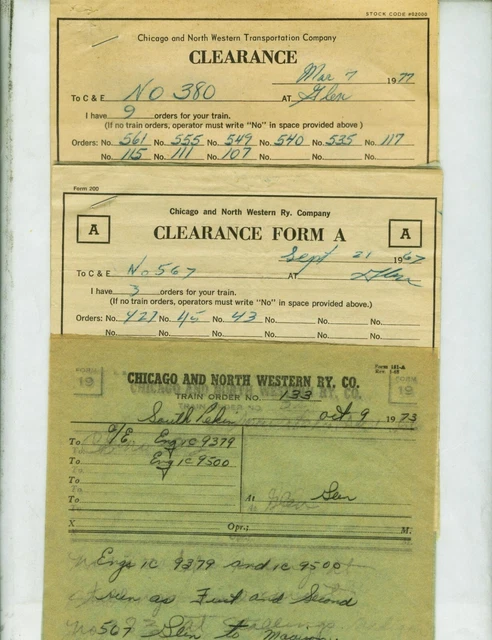 STOCK CODE #82059
Chicago and North Western Transportation Company
CLEARANCE
Mar 7 1977
To C & E No 380 AT Glen
I have 9 orders for your train.
(If no train orders, operator must write "No" in space provided above.)
Orders: No. 561 No. 555 No. 549 No. 540 No. 535 No. 117
No. 115 No. 111 No. 107 No. No. No.
Form 200
Chicago and North Western Ry. Company
A CLEARANCE FORM A A
Sept 21 1967
To C & E No 567 AT Glen
I have 3 orders for your train.
(If no train orders, operators must write "No" in space provided above.)
Orders: No. 427 No. 45 No. 43 No. No. No.
No. No. No. No. No. No.
Form 121-A
FORM 19 CHICAGO AND NORTH WESTERN RY. CO. FORM 19
TRAIN ORDER NO. 133
South Pekin Oct 9 1973
To C/E Eng IC 9379
To Eng IC 9500
To
To At Glen
To
X Opr.; M.
Engs IC 9379 and IC 9500
as First and Second
No 567 Glen to